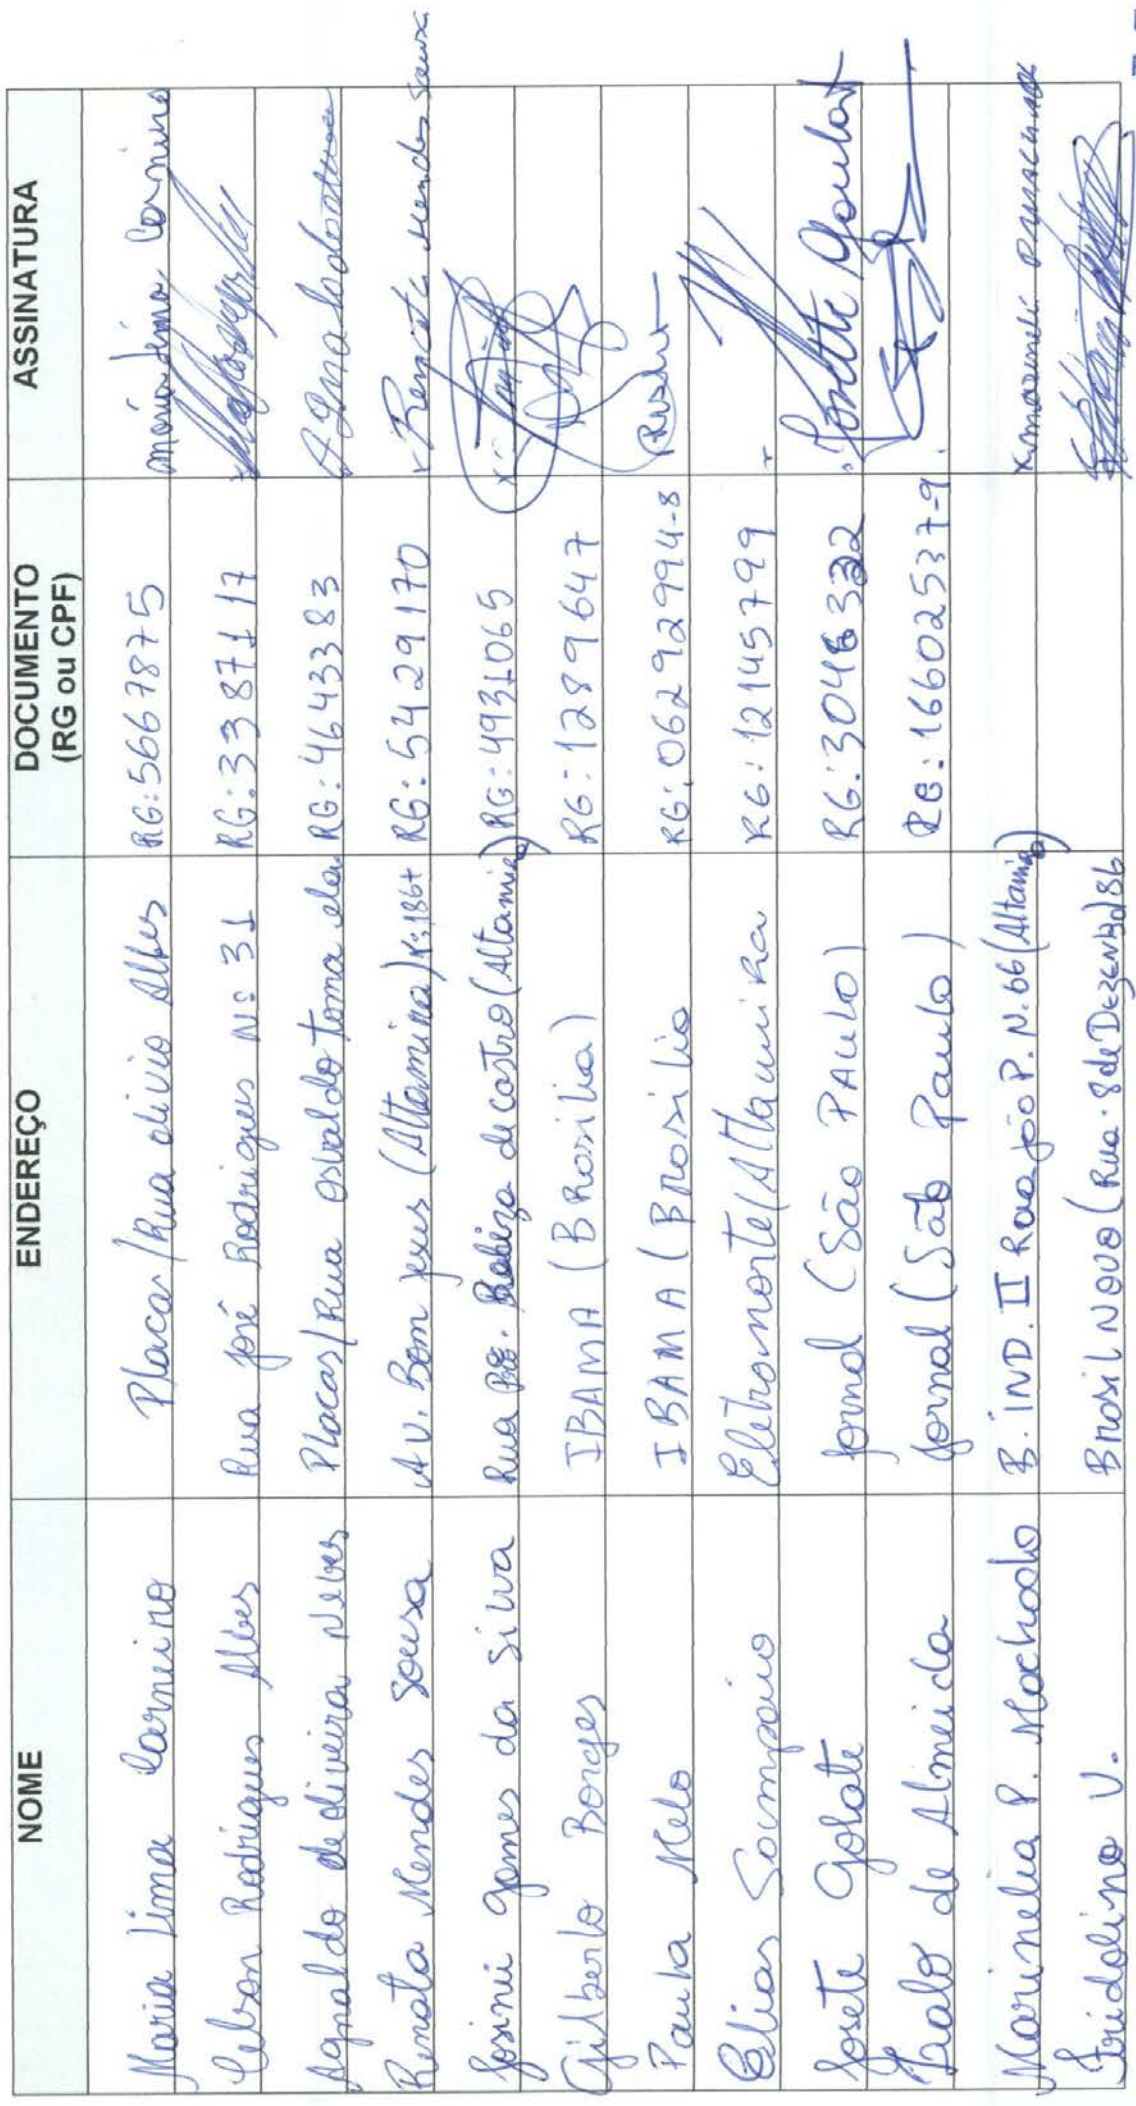 NOME ENDEREÇO DOCUMENTO (RG ou CPF) ASSINATURA
Maria Lima Carneiro Placas/Rua olivio Alves RG:5667875 maria lima Carneiro
Gelson Rodrigues Alves Rua José Rodrigues Nº 31 RG:3387117
Agnaldo de oliveira Neves Placas/Rua osvaldo toma RG:4643383
Renata Mendes Sousa Av. Bom Jesus (Altamira) RG:5429170 Renata Mendes Sousa
Josinei Gomes da Silva Rua Pe. de castro (Altamira) RG:4931065
Gilberto Borges IBAMA (Brasilia) RG:1289647
Paula Melo IBAMA (Brasilia RG:06292994-8
Elias Sampaio Eletronorte/Altamira RG:12145799
Josete Golate Jornal (São PAulo) RG:3046322 Josette Goulart
Paulo de Almeida Jornal (São Paulo) RG:16602537-9
Marinelia P. Machado B. iND. II Rua joão P. N.66 (Altamira)
Fridolino V. Brasil Novo (Rua: 8 de Dezembro/86